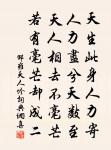 天生此身人力寄
人力盡兮天數至
天人相去不毫芒
若有毫芒却成二
邵雍天人吟詞典網書